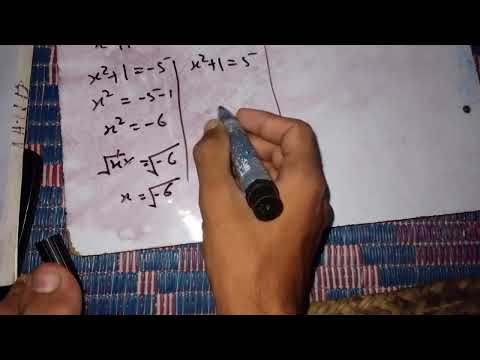 x²+1 = -5
x² = -5-1
x² = -6
√x² = √-6
x = √-6
x²+1 = 5